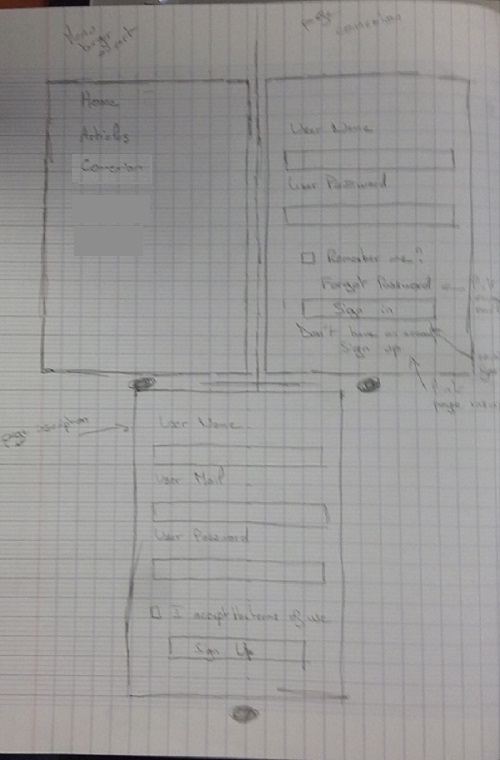 Menu
page
Home
Articles
Connexion
page connexion
User Name
User Password
Remember me?
Forgot Password
Sign in
Don't have an account
Sign up
page
page inscription
User Name
User Mail
User Password
I accept the terms of use
Sign Up